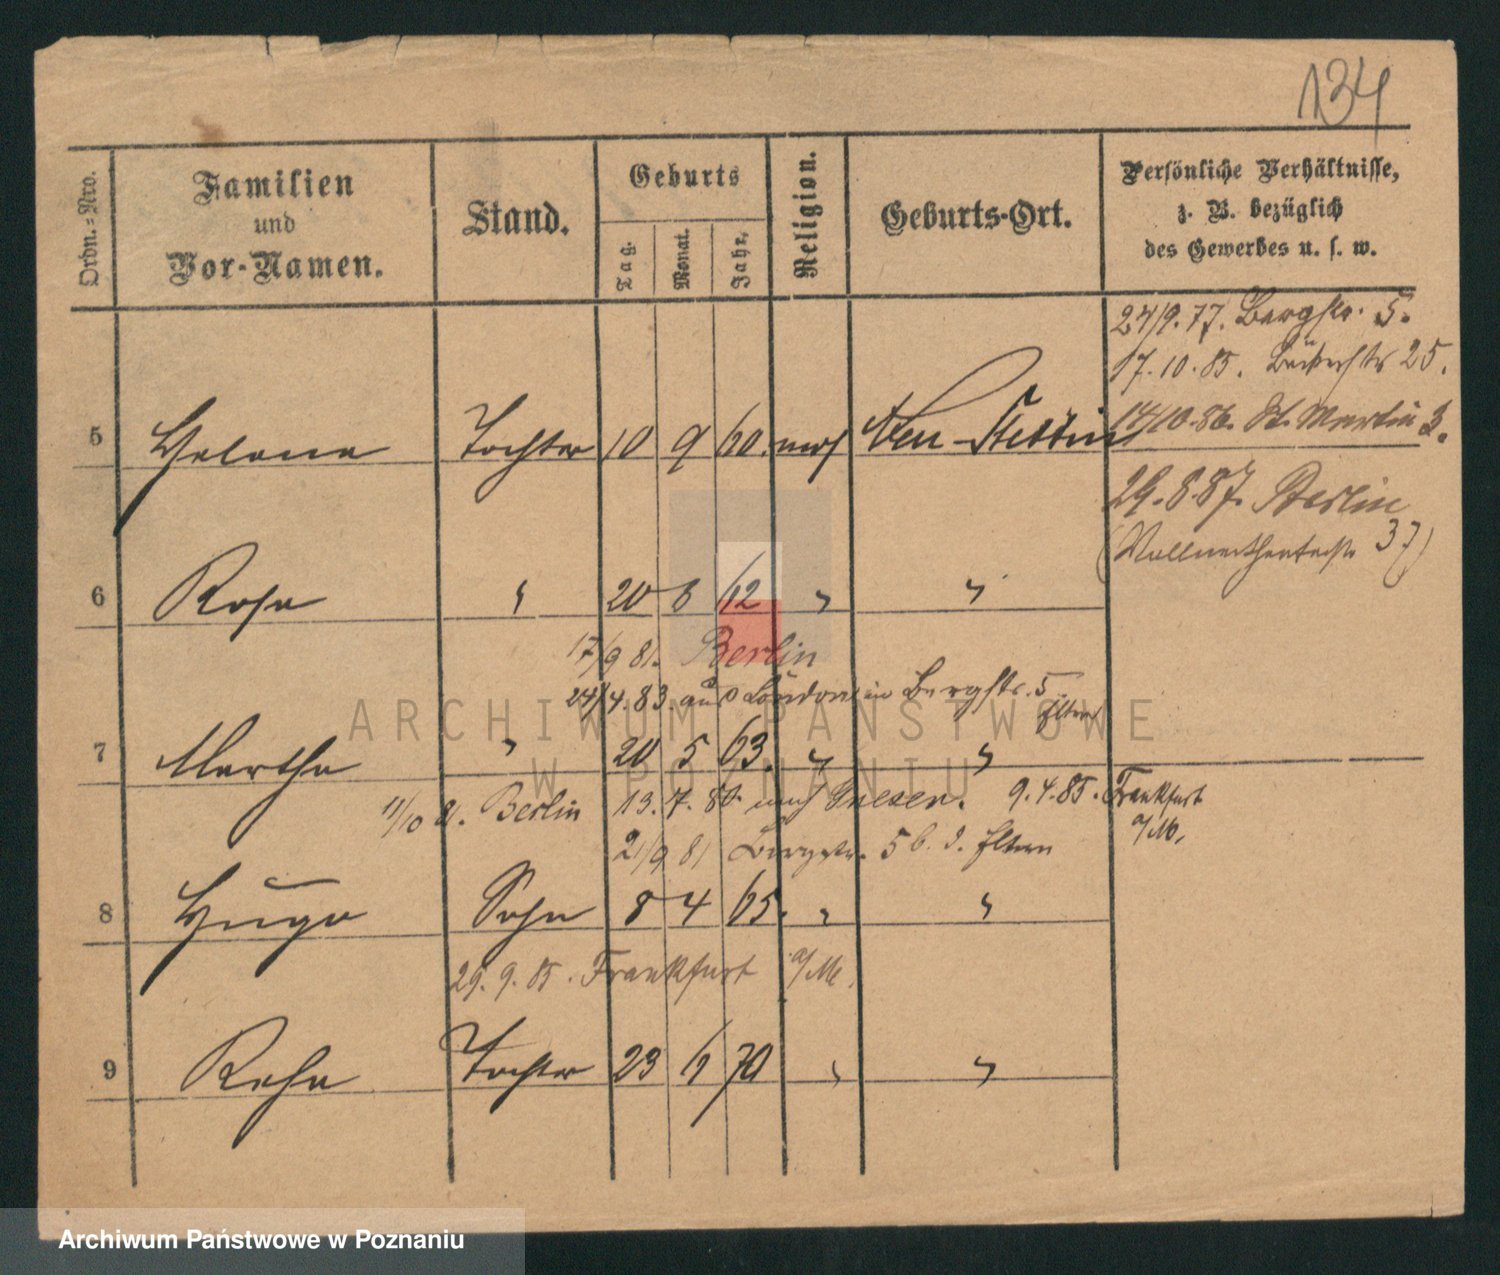 134
Ordn.-Nro.
Familien
und
Vor-Namen.
Stand.
Geburts
Tag.
Monat.
Jahr.
Religion.
Geburts-Ort.
Persönliche Verhältnisse,
z. B. bezüglich
des Gewerbes u. s. w.
24/9.77. Bergstr. 5.
17.10.85. Bäckerstr 25.
14/10.86. St. Martin 3.
5 Helene Tochter 10 9 60. mos Neu-Stettin
29.8.87. Berlin
37)
6 Rosa " 20 6 62 " "
17/9 81. Berlin
24/4.83. aus London in Bergstr. 5
Eltern
7 Martha " 20 5 63. " "
11/10 81. Berlin 13.7. nach Gnesen. 9.4.85. Frankfurt
a/M.
21/9 81 Bergstr. 5 b. d. Eltern
8 Hugo Sohn 8 4 65. " "
29.9.85. Frankfurt a/M.
9 Tochter 23 6 70 " "
ARCHIWUM PAŃSTWOWE
W POZNANIU
Archiwum Państwowe w Poznaniu